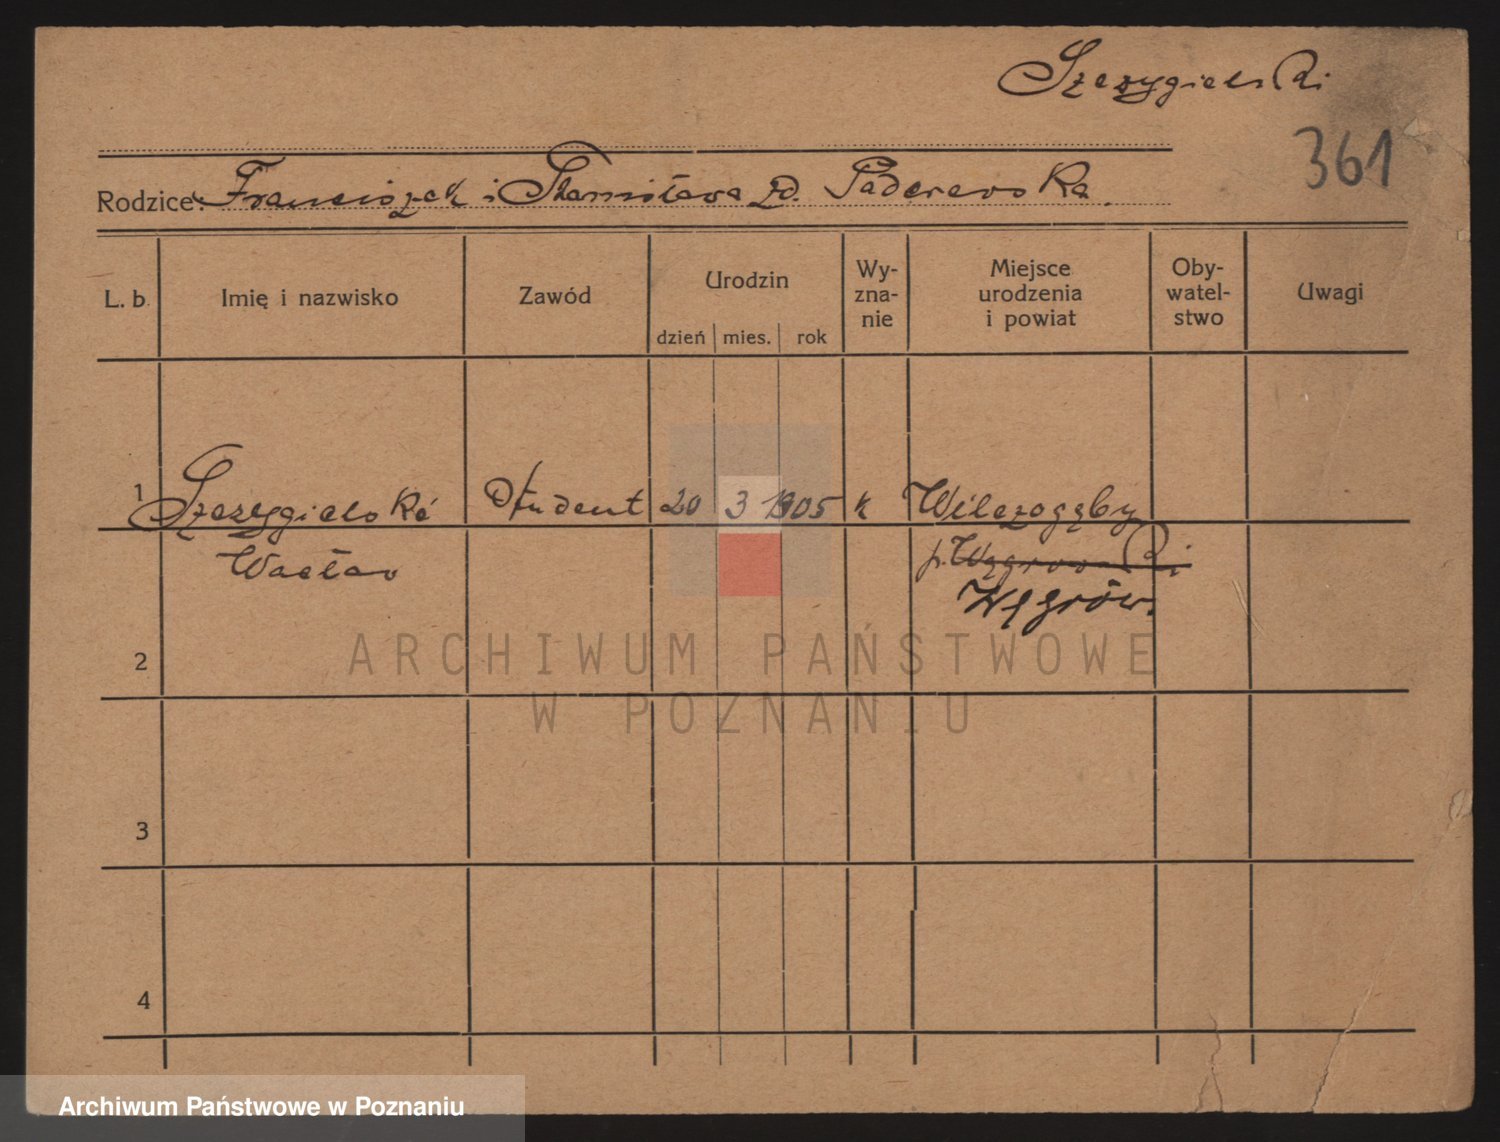 Szczygielski
361
Rodzice: Franciszek i Stanisława zd. Paderewska.
L. b. Imię i nazwisko Zawód Urodzin Wy-zna-nie Miejsce urodzenia i powiat Oby-watel-stwo Uwagi
dzień mies. rok
1 Szczygielski Student 20 3 1905 k Wilczogęby
Wacław p. Węgrowski
Węgrów.
2
ARCHIWUM PAŃSTWOWE
W POZNANIU
3
4
Archiwum Państwowe w Poznaniu